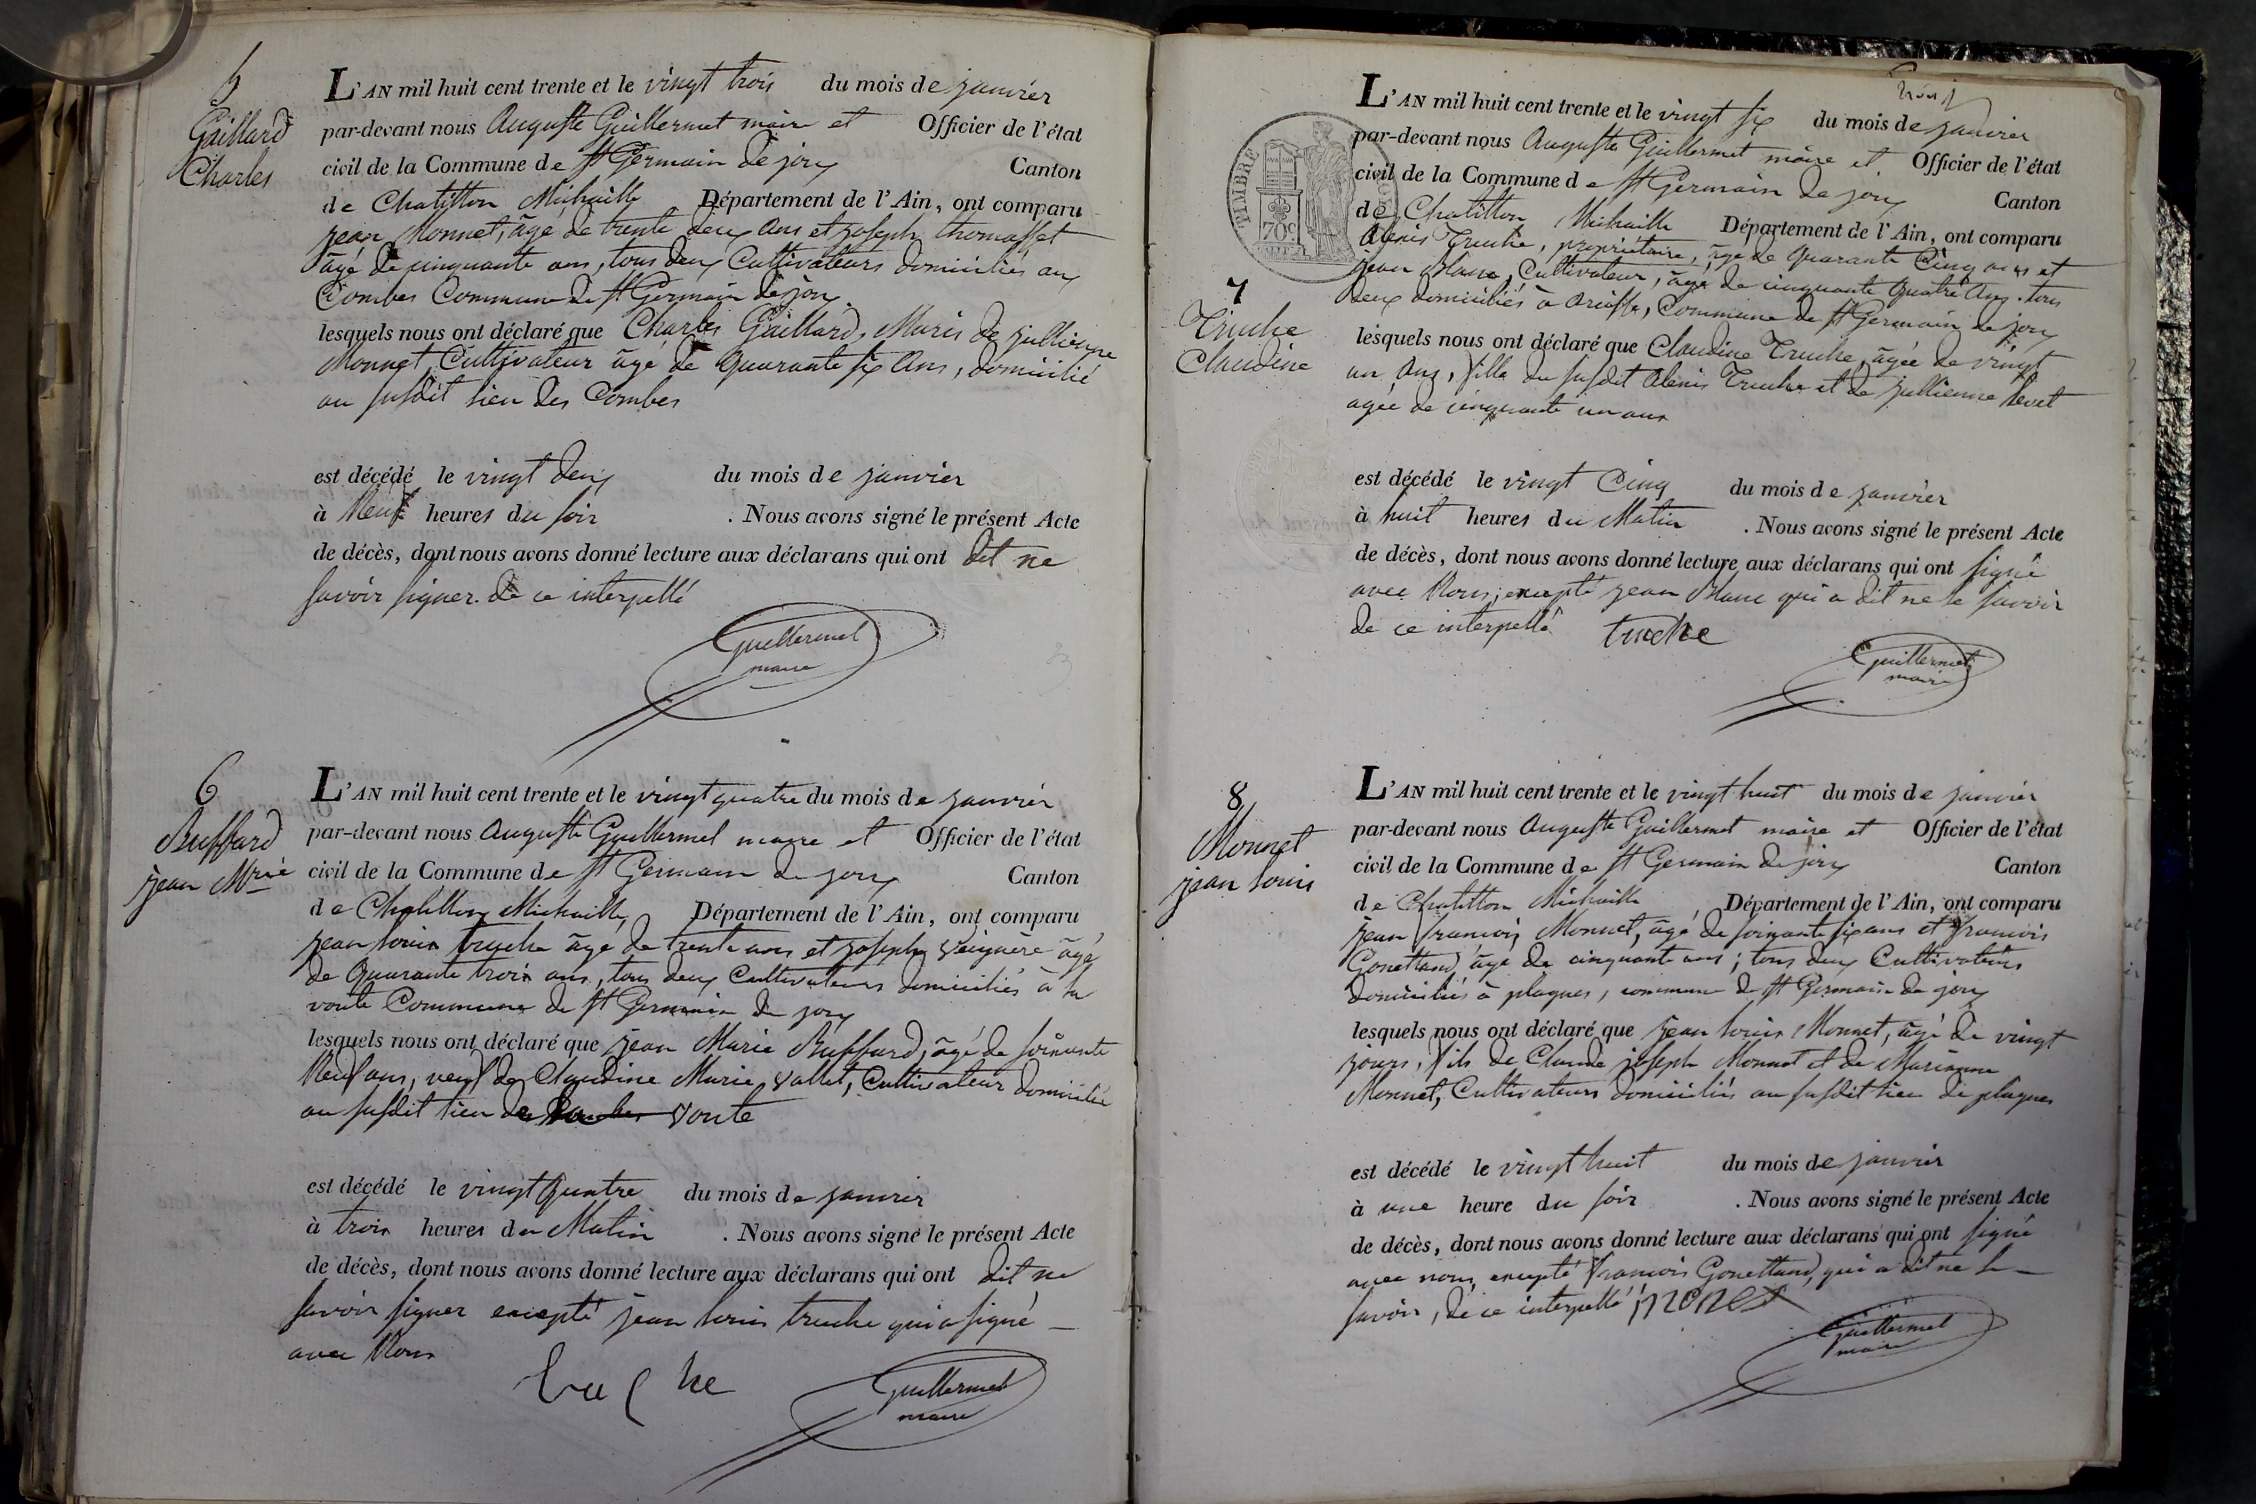 5
Gaillard
Charles
L'AN mil huit cent trente et le vingt trois du mois de janvier
par-devant nous Auguste Guillermet maire et Officier de l'état
civil de la Commune de St Germain de joux Canton
de Chatillon Michaille Département de l'Ain, ont comparu
jean Monnet, âgé de trente deux ans et joseph thomasset
âgé de cinquante ans, tous deux Cultivateurs domiciliés aux
Combes Commune de St Germain de joux
lesquels nous ont déclaré que Charles Gaillard, Maris de jullienne
Monnet, Cultivateur âgé de quarante six Ans, domicilié
au susdit lieu des Combes
est décédé le vingt deux du mois de janvier
à Neuf heures du soir . Nous avons signé le présent Acte
de décès, dont nous avons donné lecture aux déclarans qui ont dit ne
savoir signer de ce interpellé
Guillermet
maire
6
Buffard
jean Mrie
L'AN mil huit cent trente et le vingt quatre du mois de janvier
par-devant nous Auguste Guillermet maire et Officier de l'état
civil de la Commune de St Germain de joux Canton
de Chatillon Michaille Département de l'Ain, ont comparu
jean louis truche âgé de trente ans et joseph âgé
de quarante trois ans, tous deux Cultivateurs domiciliés à la
voute Commune de St Germain de joux
lesquels nous ont déclaré que jean Marie Buffard, âgé de soixante
Neuf ans, veuf de Claudine Marie Vallet, Cultivateur domicilié
au susdit lieu de voute
est décédé le vingt quatre du mois de janvier
à trois heures du Matin . Nous avons signé le présent Acte
de décès, dont nous avons donné lecture aux déclarans qui ont dit ne
savoir signer excepté jean louis truche qui a signé
avec Nous
truche
Guillermet
maire
trois
TIMBRE
70c
L'AN mil huit cent trente et le vingt six du mois de janvier
par-devant nous Auguste Guillermet maire et Officier de l'état
civil de la Commune de St Germain de joux Canton
de Chatillon Michaille Département de l'Ain, ont comparu
Alexis Truche, propriétaire, âgé de quarante Cinq ans et
jean Blanc, Cultivateur, âgé de cinquante quatre Ans, tous
deux domiciliés à Commune de St Germain de joux
7
Truche
Claudine
lesquels nous ont déclaré que Claudine Truche, âgée de vingt
un Ans, fille du susdit Alexis Truche et de jullienne Levet
agée de cinquante un ans
est décédé le vingt Cinq du mois de janvier
à huit heures du Matin . Nous avons signé le présent Acte
de décès, dont nous avons donné lecture aux déclarans qui ont signé
avec Nous, excepté jean Blanc qui a dit ne le savoir
de ce interpellé truche
Guillermet
maire
8
Monnet
jean louis
L'AN mil huit cent trente et le vingt huit du mois de janvier
par-devant nous Auguste Guillermet maire et Officier de l'état
civil de la Commune de St Germain de joux Canton
de Chatillon Michaille Département de l'Ain, ont comparu
jean francois Monnet, âgé de soixante six ans et francois
Gonettand, âgé de cinquante ans; tous deux Cultivateurs
domiciliés à plagues, commune de St Germain de joux
lesquels nous ont déclaré que jean louis Monnet, âgé de vingt
jours, fils de Claude joseph Monnet et de Marianne
Monnet, Cultivateurs domiciliés au susdit lieu de plagues
est décédé le vingt huit du mois de janvier
à une heure du soir . Nous avons signé le présent Acte
de décès, dont nous avons donné lecture aux déclarans qui ont signé
avec nous excepté francois Gonettand, qui a dit ne le
savoir, de ce interpellé monet
Guillermet
maire